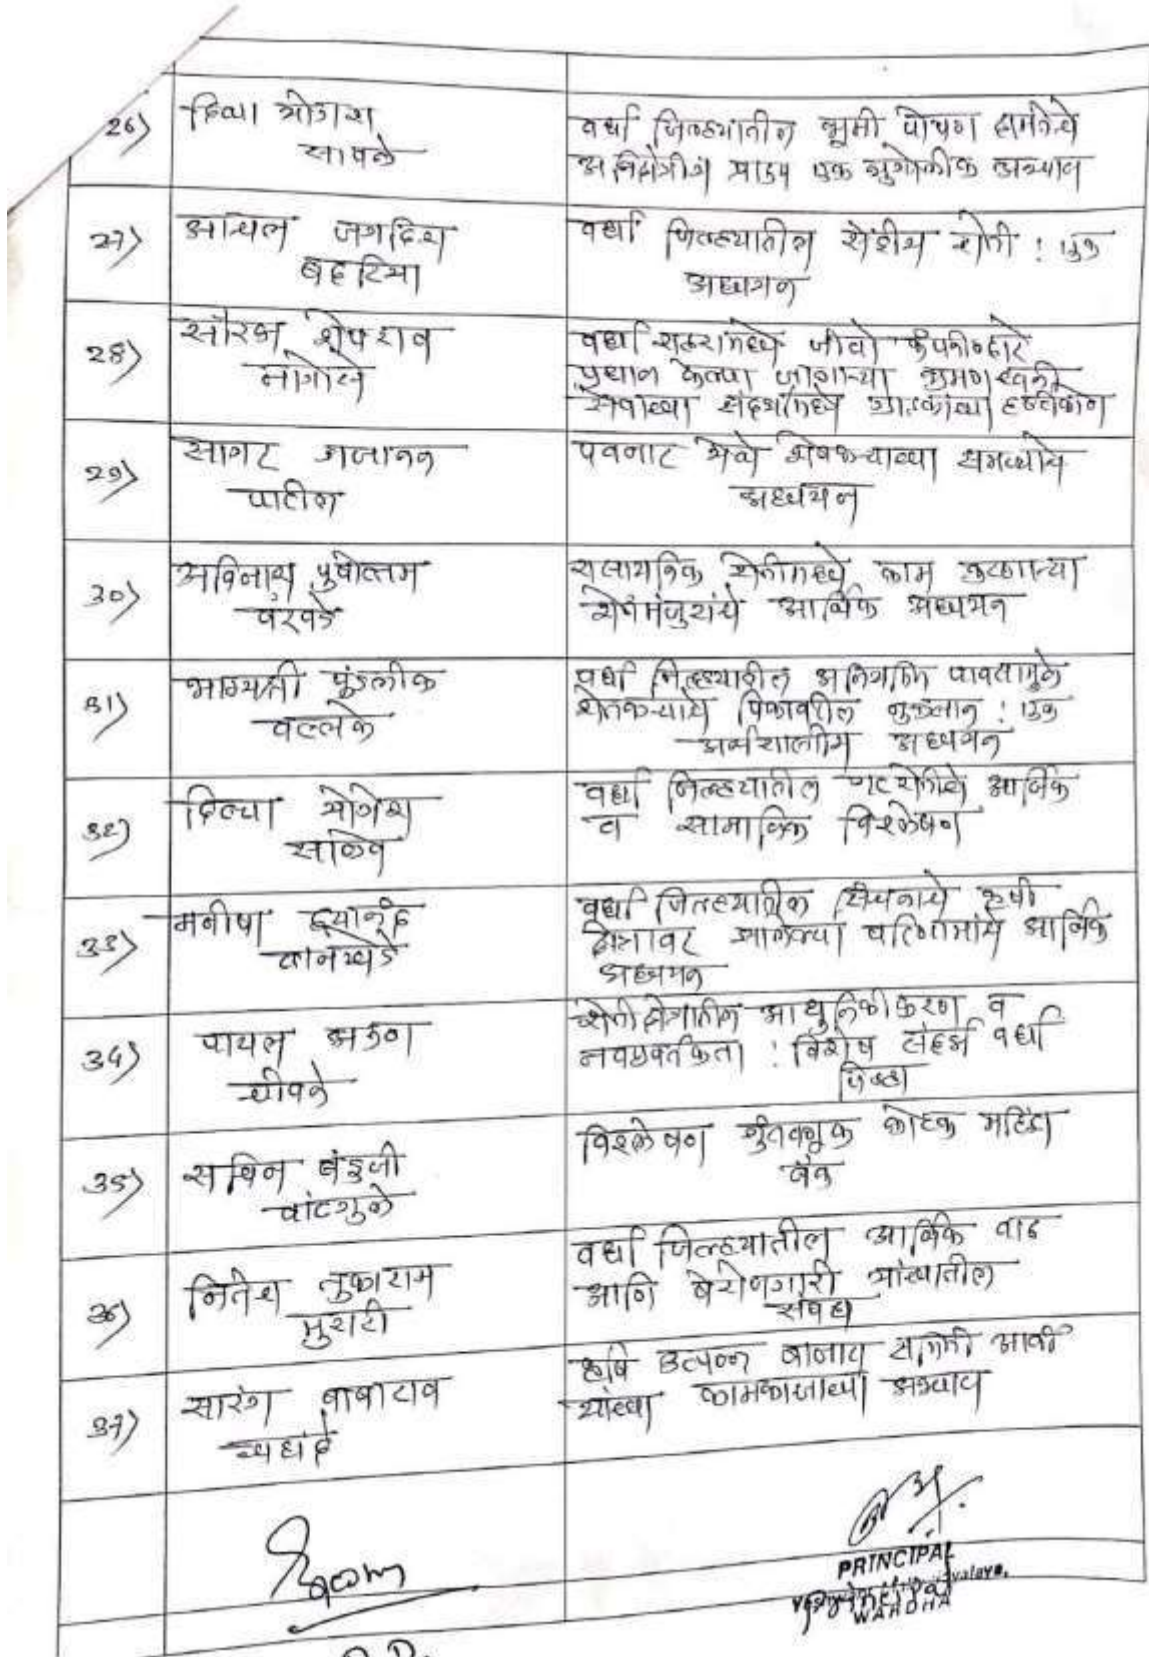 26) दिव्या योगेश
सावळे
वर्धा जिल्ह्यातील भूमी पोषण क्षमतेचे
प्रारूप एक भुगोलीक अभ्यास
27) आचल जगदिश
बहटिया
वर्धा जिल्ह्यातील सेंद्रीय शेती : एक
अध्ययन
28) सौरभ शेषराव
नागोसे
वर्धा शहरामध्ये जीवो कंपनीव्दारे
प्रधान केल्या जाणाऱ्या भ्रमणध्वनी
सेवांच्या संदर्भामध्ये ग्राहकांचा दृष्टीकोण
29) सागर गजानन
पाटील
पवनार येथे शेतकऱ्याच्या समस्यांचे
अध्ययन
30) अविनाश पुषोत्तम
रासायनिक शेतीमध्ये काम करणाऱ्या
शेतमंजुरांचे आर्थिक अध्ययन
31) भाग्यश्री पुंडलीक
वल्लके
वर्धा जिल्ह्यातील पावसामुळे
शेतकऱ्याचे पिकावरील नुकसान : एक
अर्थशास्त्रीय अध्ययन
32) दिव्या योगेश
वर्धा जिल्ह्यातील गटशेतीचे आर्थिक
व सामाजिक विश्लेषण
33) मनीषा दयानंद
वानखेडे
वर्धा जिल्ह्यातील सिंचनाचे कृषी
क्षेत्रावर झालेल्या परिणामांचे आर्थिक
अध्ययन
34) पायल अरुण
शेती क्षेत्रातील आधुनिकीकरण व
नवप्रवर्तकता : विशेष संदर्भ वर्धा
जिल्हा
35) सचिन बंडूजी
वांदगुळे
विश्लेषण गुंतवणूक कोटक महिंद्रा
बँक
36) नितेश तुकाराम
मुरारी
वर्धा जिल्ह्यातील आर्थिक वाढ
आणि बेरोजगारी यांच्यातील
संबंध
37) सारंग बाबाराव
कृषि उत्पन्न बाजार समिती आर्वी
यांच्या कामकाजाचा अभ्यास
PRINCIPAL
WARDHA